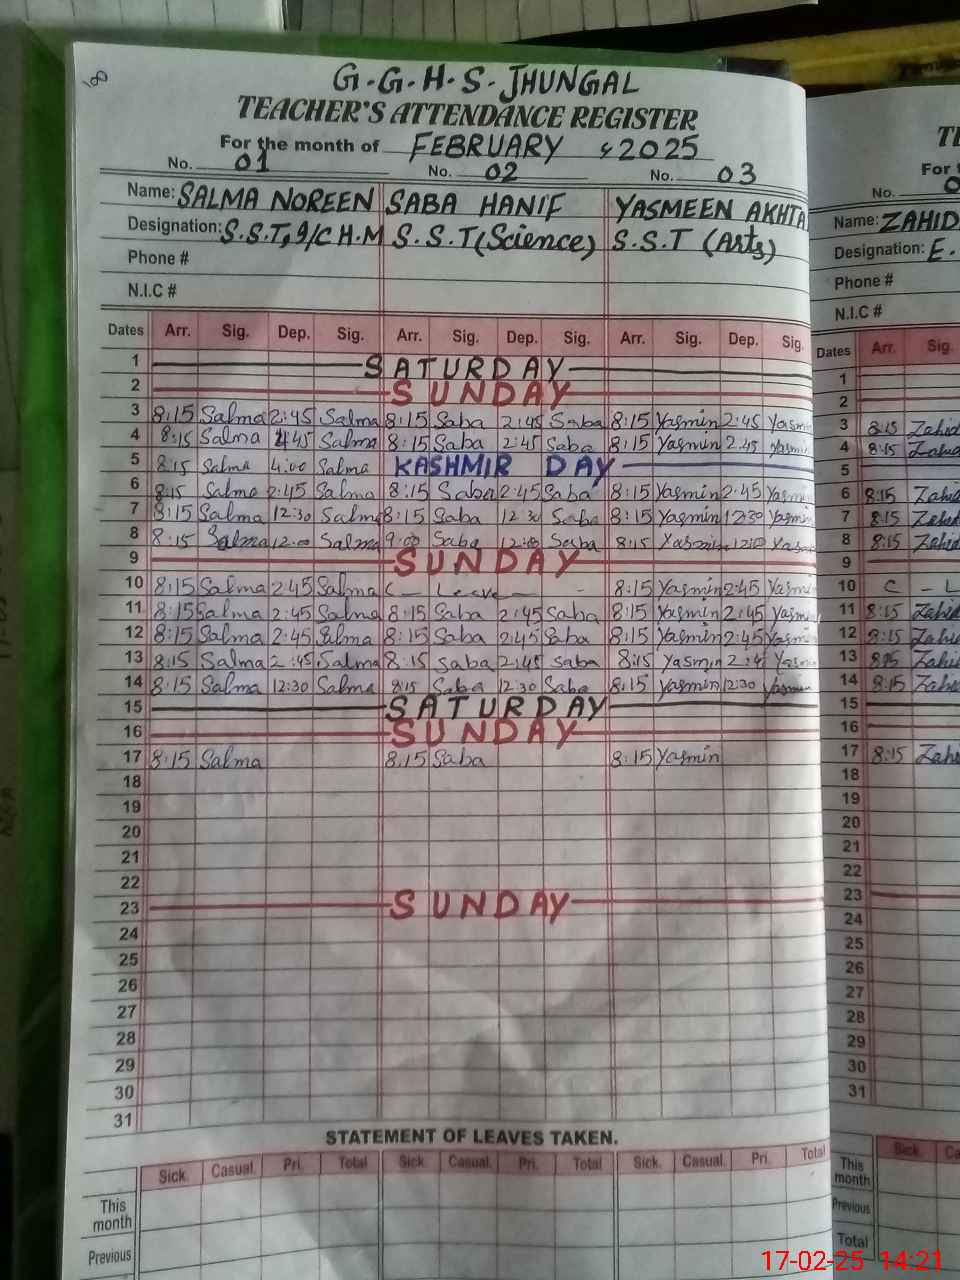 G.G.H.S. JHUNGAL
TEACHER'S ATTENDANCE REGISTER
For the month of FEBRUARY, 2025
No. 01 No. 02 No. 03
Name: SALMA NOREEN SABA HANIF YASMEEN AKHTA
Designation: S.S.T, I/C H.M S.S.T (Science) S.S.T (Arts)
Phone #
N.I.C #
Dates Arr. Sig. Dep. Sig. Arr. Sig. Dep. Sig. Arr. Sig. Dep. Sig.
1 SATURDAY
2 SUNDAY
3 8:15 Salma 2:45 Salma 8:15 Saba 2:45 Saba 8:15 Yasmin 2:45 Yasmin
4 8:15 Salma 2:45 Salma 8:15 Saba 2:45 Saba 8:15 Yasmin 2:45 Yasmin
5 8:15 Salma 4:00 Salma KASHMIR DAY
6 8:15 Salma 2:45 Salma 8:15 Saba 2:45 Saba 8:15 Yasmin 2:45 Yasmin
7 8:15 Salma 12:30 Salma 8:15 Saba 12:30 Saba 8:15 Yasmin 12:30 Yasmin
8 8:15 Salma 12:00 Salma 9:00 Saba 12:00 Saba 8:15 Yasmin 12:00 Yasmin
9 SUNDAY
10 8:15 Salma 2:45 Salma C — Leave — - 8:15 Yasmin 2:45 Yasmin
11 8:15 Salma 2:45 Salma 8:15 Saba 2:45 Saba 8:15 Yasmin 2:45 Yasmin
12 8:15 Salma 2:45 Salma 8:15 Saba 2:45 Saba 8:15 Yasmin 2:45 Yasmin
13 8:15 Salma 2:45 Salma 8:15 Saba 2:45 Saba 8:15 Yasmin 2:45 Yasmin
14 8:15 Salma 12:30 Salma 8:15 Saba 12:30 Saba 8:15 Yasmin 12:30 Yasmin
15 SATURDAY
16 SUNDAY
17 8:15 Salma 8:15 Saba 8:15 Yasmin
18
19
20
21
22
23 SUNDAY
24
25
26
27
28
29
30
31
STATEMENT OF LEAVES TAKEN.
Sick. Casual. Pri. Total Sick. Casual. Pri. Total Sick. Casual. Pri. Total
This month
Previous
No.
Name: ZAHID
Designation: E.
Phone #
N.I.C #
Dates Arr. Sig.
1
2
3 8:15 Zahid
4 8:15 Zahid
5
6 8:15 Zahid
7 8:15 Zahid
8 8:15 Zahid
9
10 C - L
11 8:15 Zahid
12 8:15 Zahid
13 8:15 Zahid
14 8:15 Zahid
15
16
17 8:15 Zahid
18
19
20
21
22
23
24
25
26
27
28
29
30
31
Sick. Ca
This month
Previous
Total
17-02-25 14:21